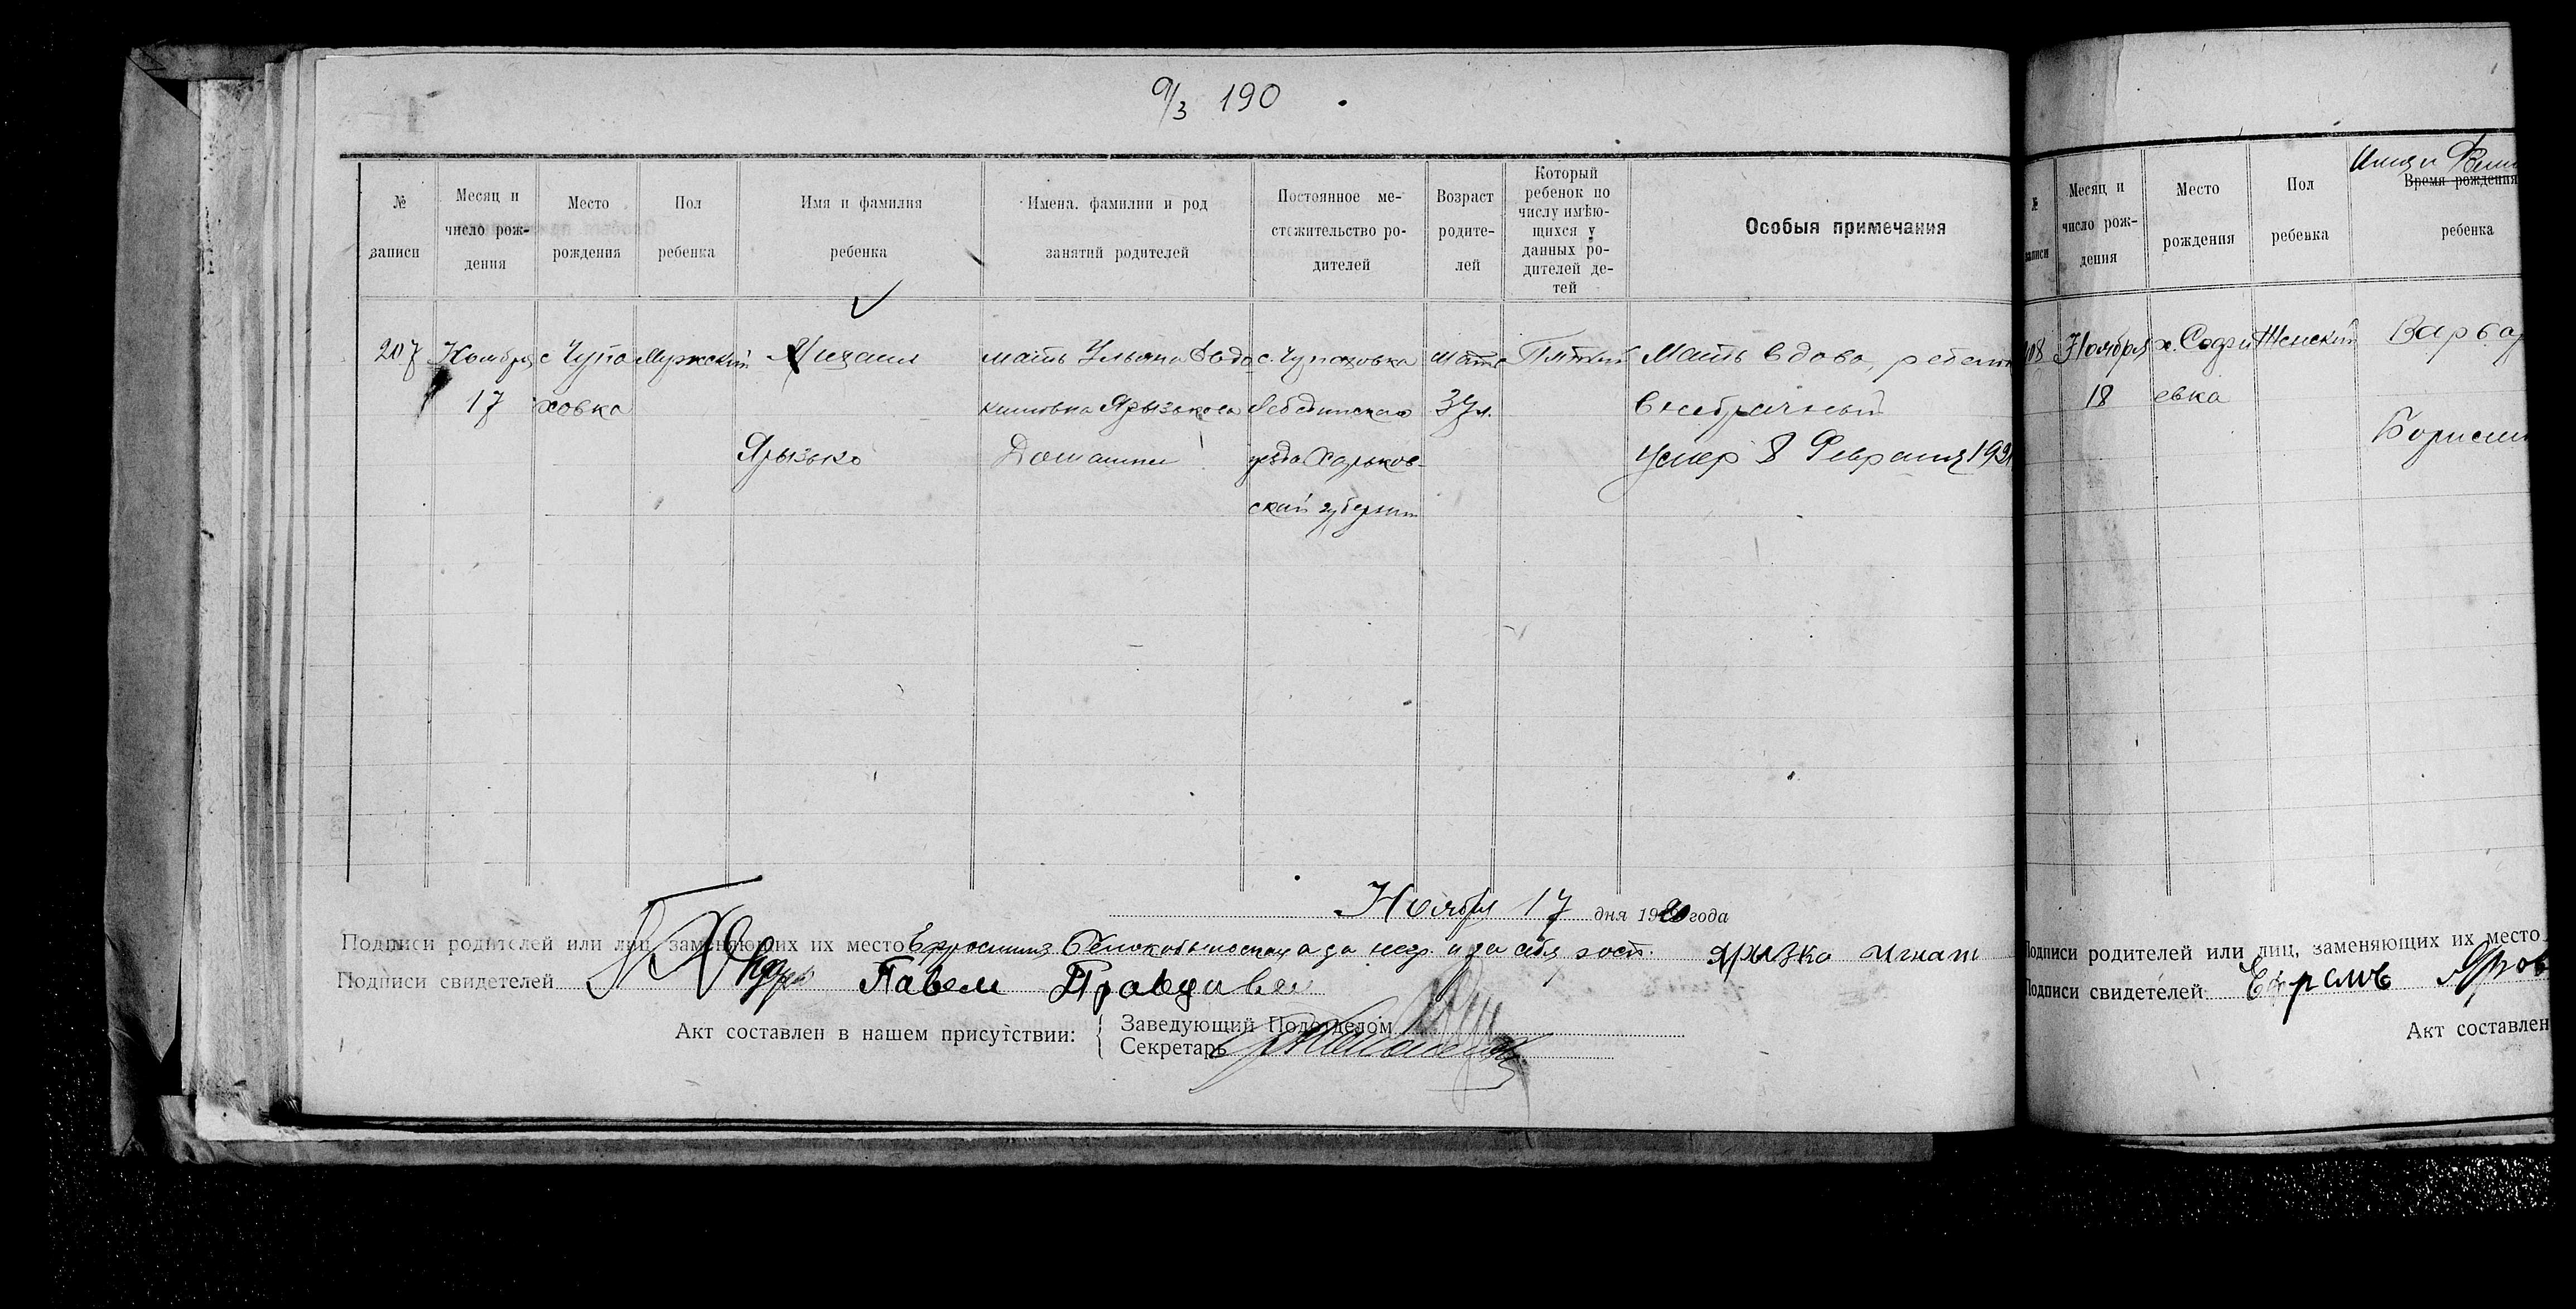 9/3 190
№ записи
Месяц и число рождения
Место рождения
Пол ребенка
Имя и фамилия ребенка
Имена, фамилии и род занятий родителей
Постоянное местожительство родителей
Возраст родителей
Который ребенок по числу имѣющихся у данных родителей детей
Особыя примечания
207 Ноября с Чупа Мужской Михаил мать Ульяна с. Чупаховка мать Пятый Мать вдова,
17 ховка Лебединскаго 37 л. внебрачный
Ярызько Домашн уезда Харьков- умер 8 Февраля 192
ской губернии
Ноября 17 дня 1920 года
Подписи родителей или лиц, заменяющих их место Ефросиния а за негр. и за себя Ярызко Игнат
Подписи свидетелей Павел
Акт составлен в нашем присутствии:
Заведующий Подотделом
Секретарь
№ записи
Месяц и число рождения
Место рождения
Пол ребенка
Имя и
Время рождения
ребенка
208 Ноября х. Софи Женский Варвар
18 евка
Подписи родителей или лиц, заменяющих их место
Подписи свидетелей Ефремъ
Акт составлен